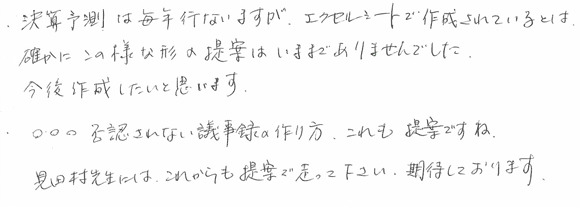 ・決算予測は毎年行ないますが、エクセルシートで作成されているとは、
確かにこの様な形の提案はいままでありませんでした。
今後作成したいと思います。
・○○○ 否認されない議事録の作り方、これも提案ですね。
見田村先生には、これからも提案で走って下さい。期待しております。